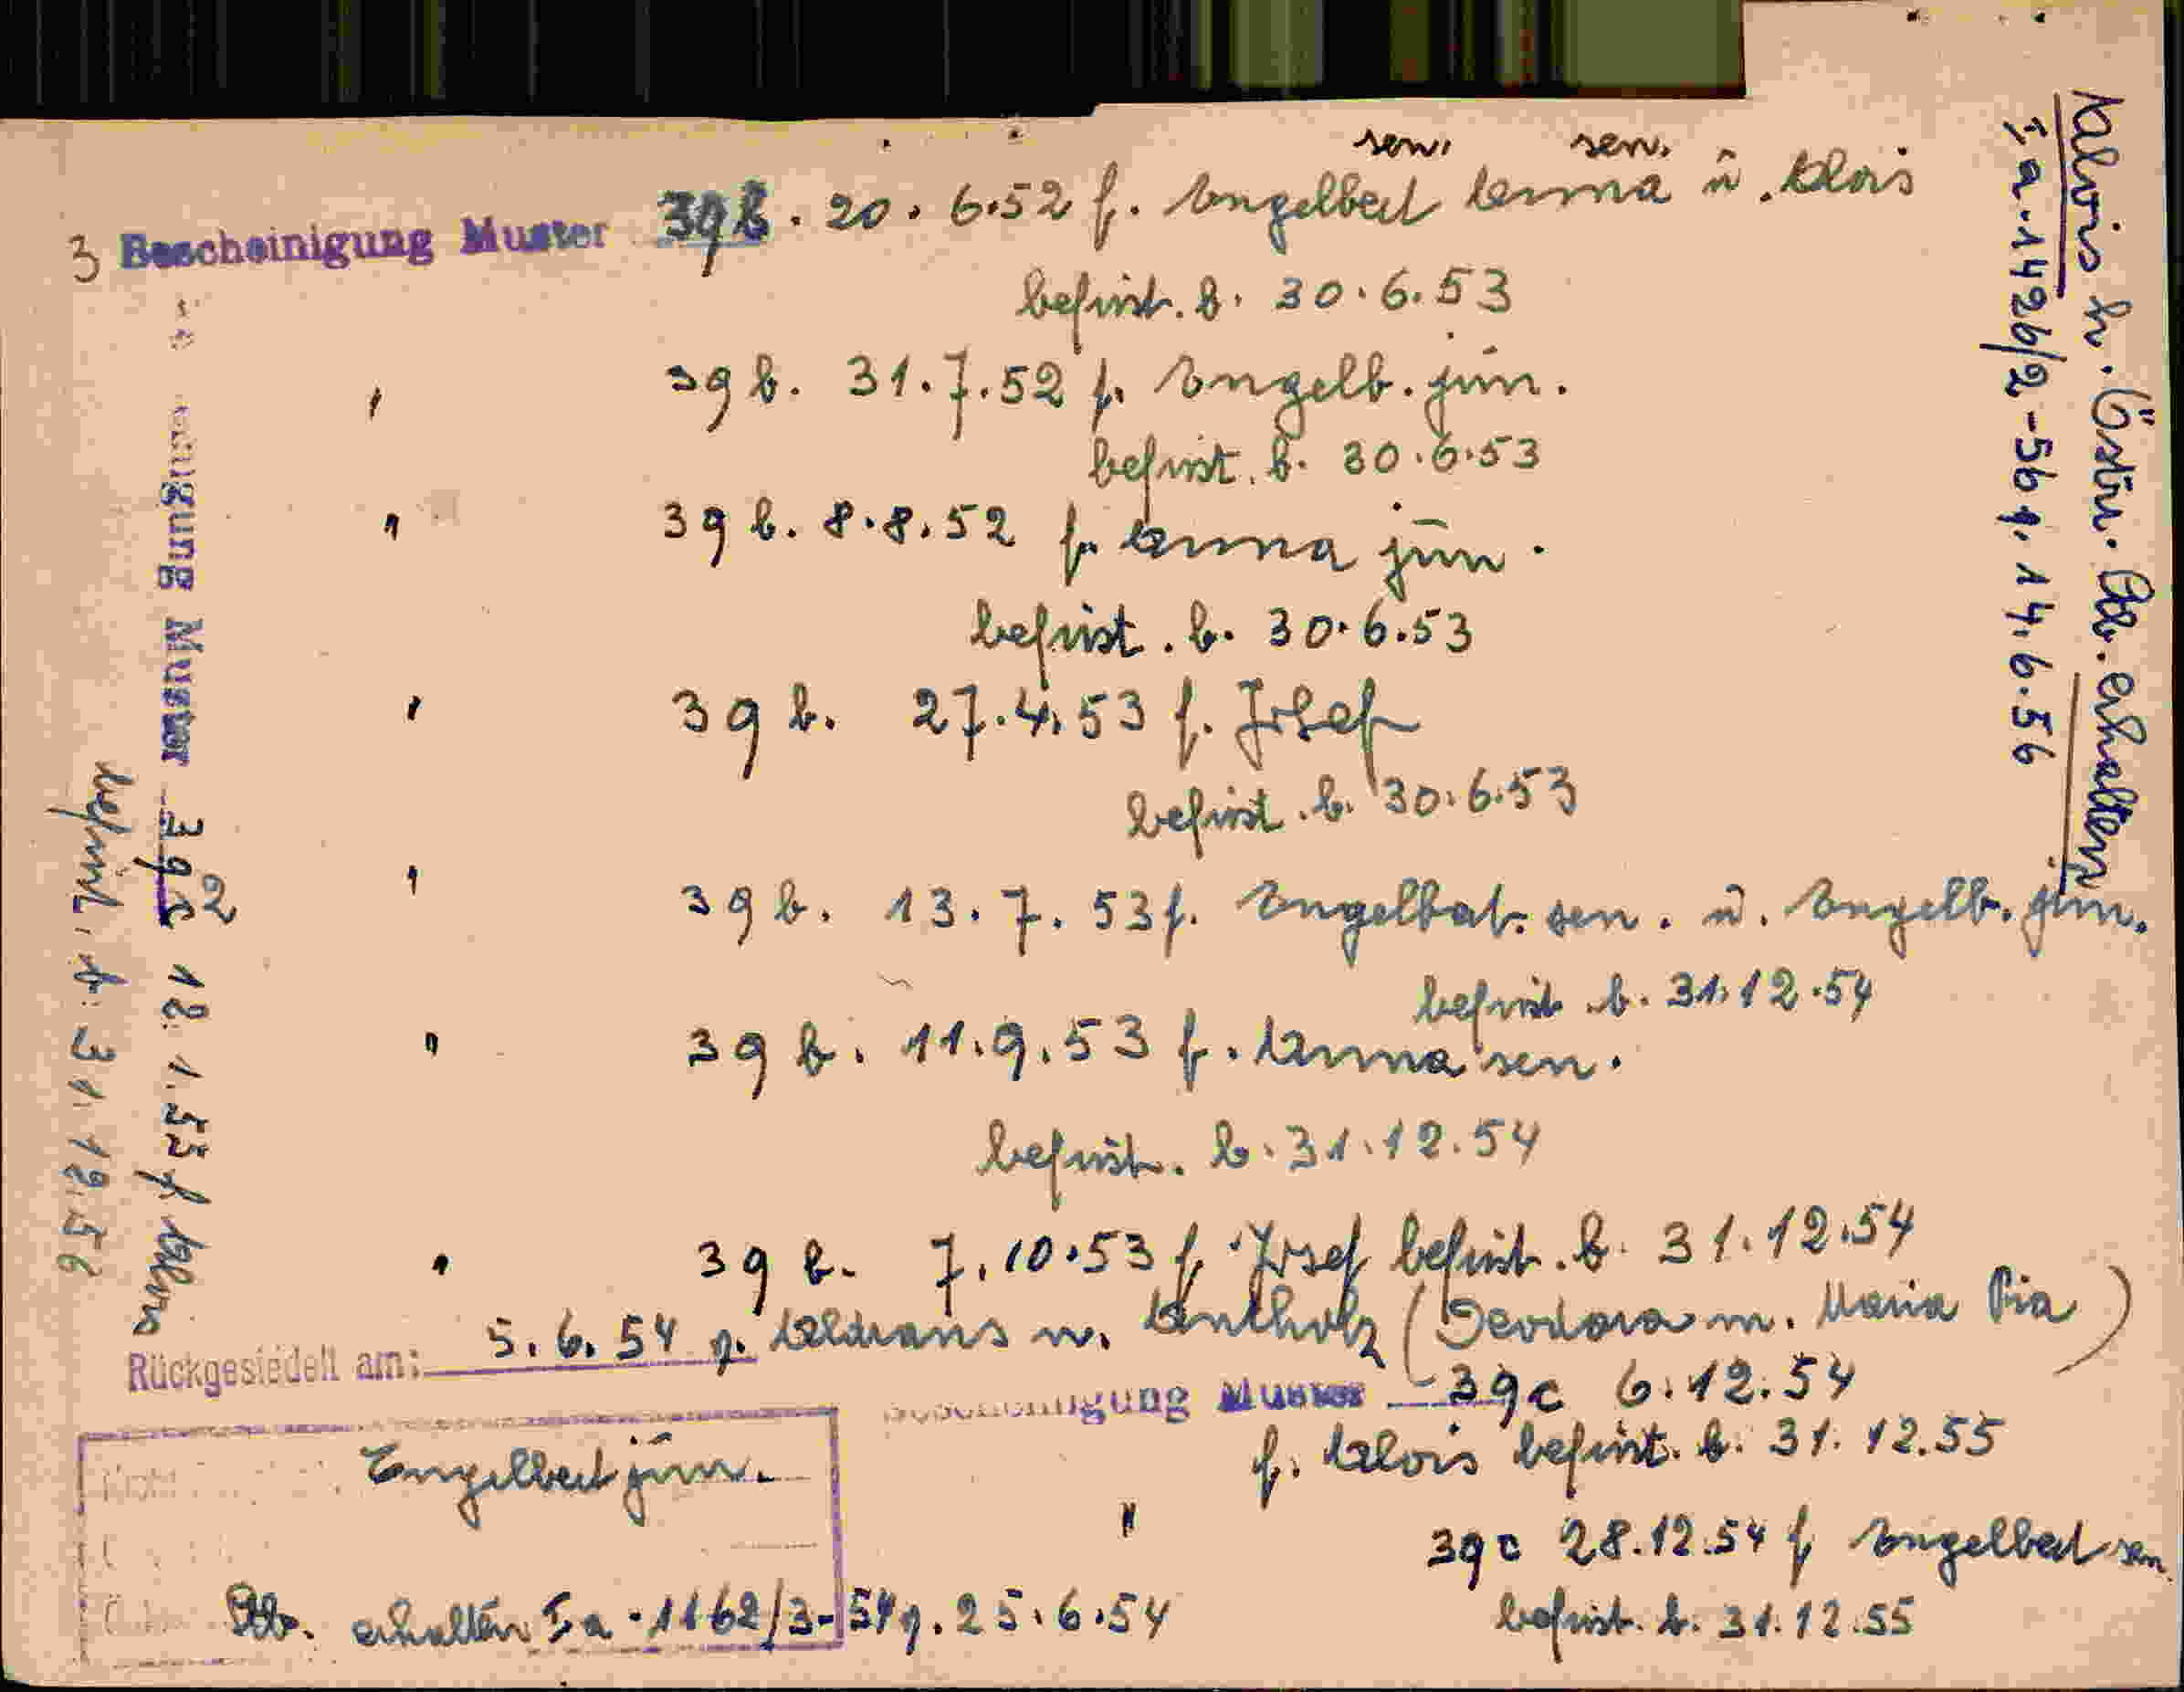 sen. sen.
3 Bescheinigung Muster 39b. 20. 6.52 f. Engelbert Anna u. Alois
befrist. b. 30.6.53
" 39b. 31.7.52 f. Engelb. jun.
befrist. b. 30.6.53
" 39b. 8.8.52 f. Anna jun.
befrist. b. 30.6.53
" 39b. 27.4.53 f. Josef
befrist. b. 30.6.53
" 39b. 13.7.53 f. Engelbert sen. u. Engelb. jun.
befrist b. 31.12.54
" 39b. 11.9.53 f. Anna sen.
befrist. b. 31.12.54
" 39b. 7.10.53 f. Josef befrist. b. 31.12.54
Rückgesiedelt am: 5.6.54 g. Aldrans n. Antholz (Deodora m. Maria Pia)
Bescheinigung Muster 39c 6.12.54
f. Alois befrist. b. 31.12.55
" 39c 28.12.54 f Engelbert sen
befrist. b. 31.12.55
Engelbert jun.
Stb. erhalten I a-1162/3-54 g. 25.6.54
Muster 39c2 12.1.55 f Alois
befrist. b. 31.12.56
Alois h. Östr. Stb. erhalten
I a-1426/2-56 g. 14.6.56